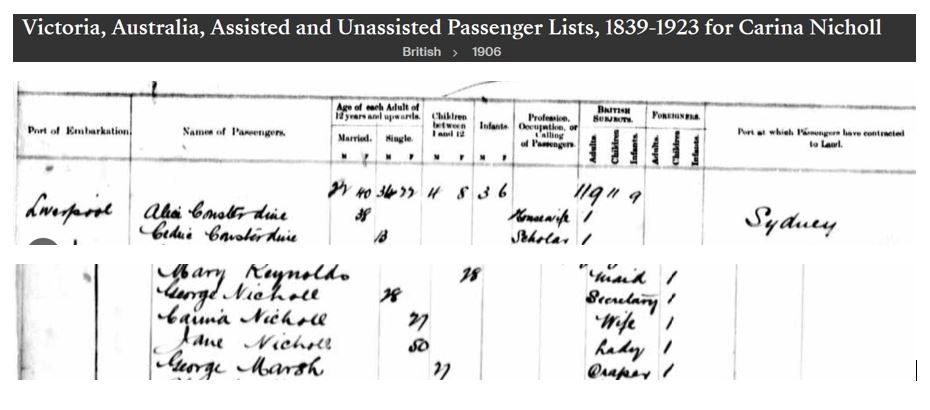 Victoria, Australia, Assisted and Unassisted Passenger Lists, 1839-1923 for Carina Nicholl
British > 1906
Port of Embarkation. Names of Passengers. Age of each Adult of 12 years and upwards. Married. Single. M F M F Children between 1 and 12 M F Infants. M F Profession, Occupation, or Calling of Passengers. BRITISH SUBJECTS. Adults. Children Infants. FOREIGNERS. Adults. Children Infants. Port at which Passengers have contracted to Land.
40 34 22 11 8 3 6 119 11 9
Liverpool Alice Consterdine 38 Housewife 1 Sydney
Cedric Consterdine 13 Scholar 1
Mary Reynolds 28 Maid 1
George Nicholl 28 Secretary 1
Carina Nicholl 27 Wife 1
Jane Nicholl 50 Lady 1
George Marsh 27 Draper 1